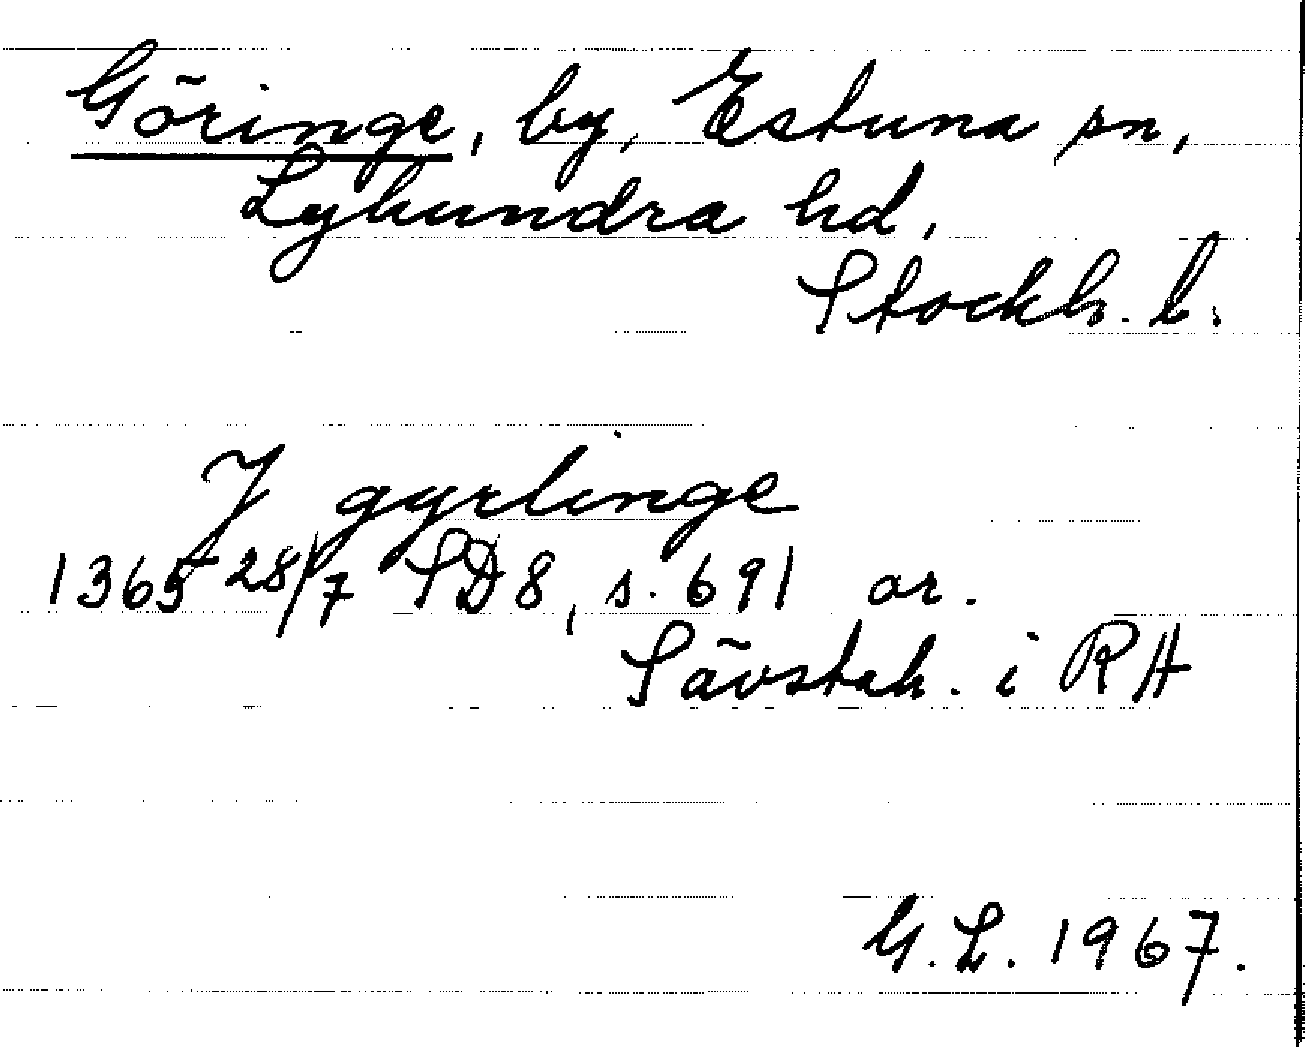 Göringe, by, Estuna sn,
Lyhundra hd,
Stockh. l.
J gyrlinge
1365 28/7 SD 8, s. 691 or.
Sävstah. i RA
G.L. 1967.